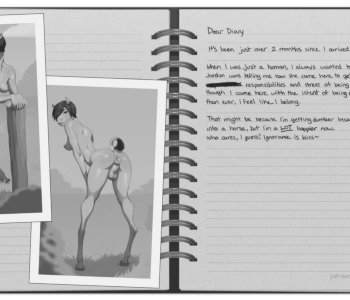 Dear Diary
It's been just over 2 months since I arrived
When I was just a human, I always wanted to
Jordan was telling me how she came here to get
responsibilities and stress of being
though I came here with the intent of being a
than ever, I feel like I belong.
That might be because I'm getting dumber
into a horse, but I'm a LOT happier now.
Who cares, I guess! Ignorance is bliss~
patreon